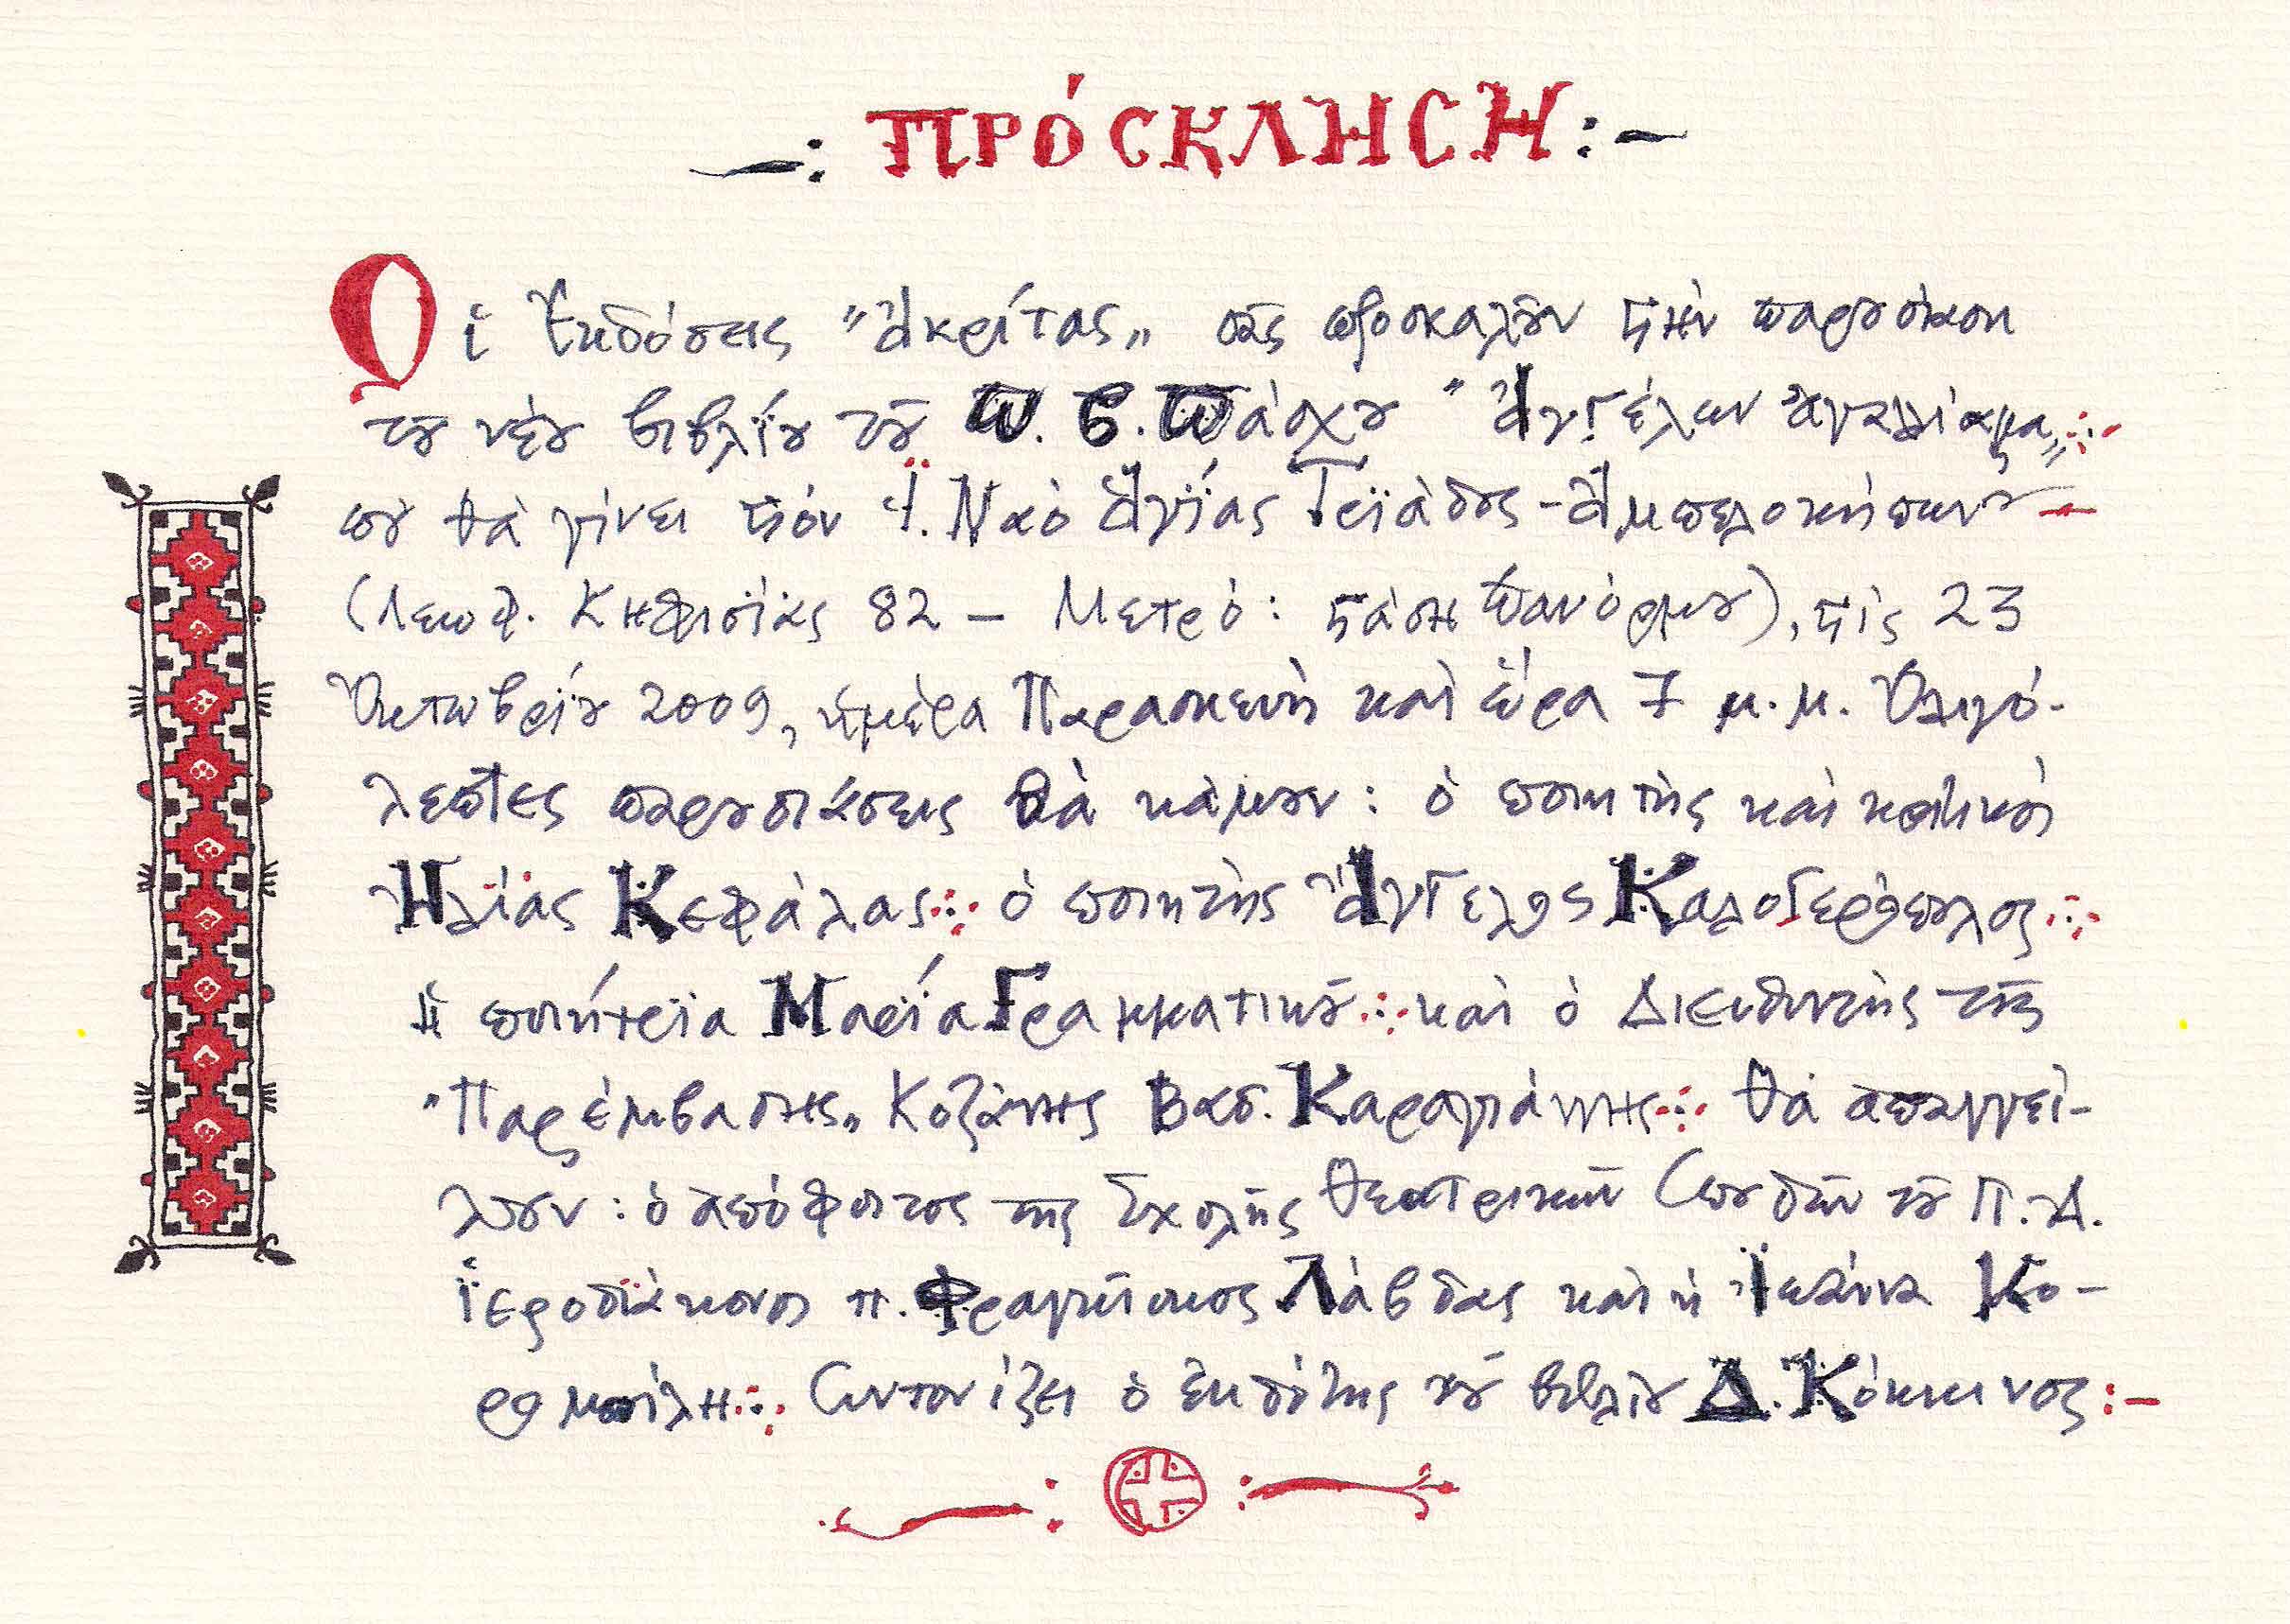 —: ΠΡΌСΚΛΗСΗ :—
Οἱ Ἐκδόσεις "Ἀκρίτας" σᾶς προσκαλοῦν στὴν παρουσίαση
τοῦ νέου βιβλίου τοῦ Π. Β. Πάσχου "Ἀγγέλων ἀγαλλίαμα"
ποὺ θὰ γίνει στὸν Ἱ. Ναὸ Ἁγίας Τριάδος - Ἀμπελοκήπων -
(Λεωφ. Κηφισίας 82 – Μετρό: στάση Πανόρμου), στὶς 23
Ὀκτωβρίου 2009, ἡμέρα Παρασκευὴ καὶ ὥρα 7 μ.μ. Ὀλιγό-
λεπτες παρουσιάσεις θὰ κάμουν: ὁ ποιητὴς καὶ κριτικὸς
Ἠλίας Κεφάλας ὁ ποιητὴς Ἄγγελος Καλογερόπουλος
ἡ ποιήτρια Μαρία Γραμματικοῦ καὶ ὁ Διευθυντὴς τῆς
"Παρέμβασης" Κοζάνης Βασ. Καραγιάννης θὰ ἀπαγγεί-
λουν: ὁ ἀπόφοιτος τῆς Σχολῆς Θεατρικῶν Σπουδῶν τοῦ Π.Α.
ἱεροδιάκονος π. Φραγκίσκος Λάβδας καὶ ἡ Ἰωάννα Κο-
ρομπίλη Συντονίζει ὁ ἐκδότης τοῦ βιβλίου Δ. Κόκκινος :–